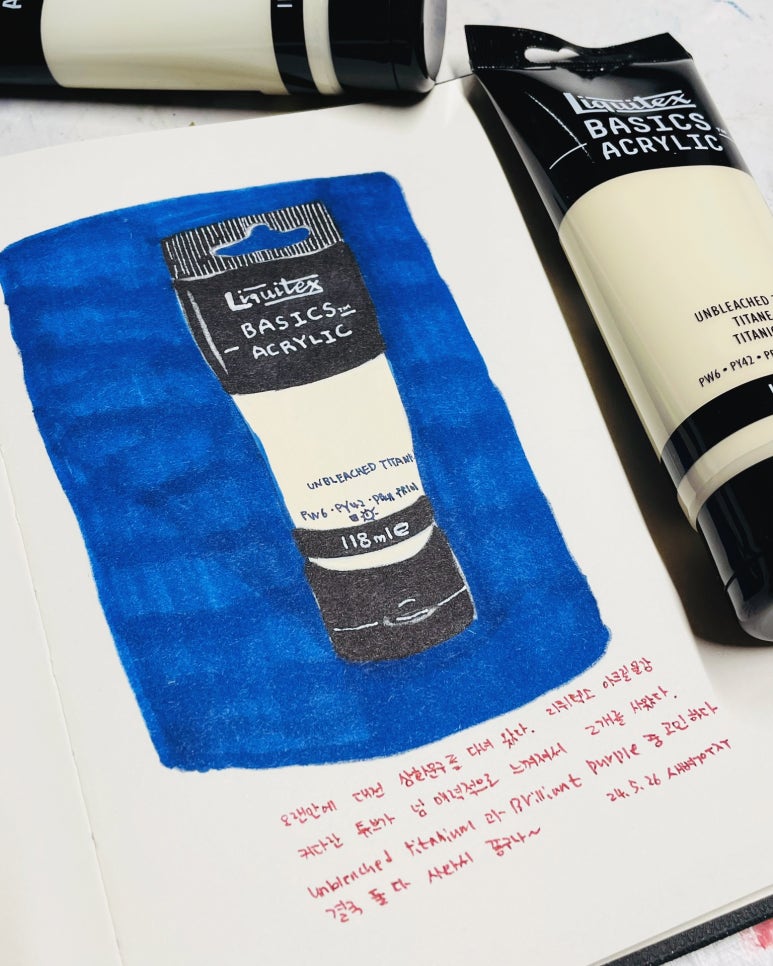 Liquitex
BASICS
ACRYLIC
UNBLEACHED
TITANE
TITANI
PW6 • PY42 • P
Liquitex
BASICS™
ACRYLIC
UNBLEACHED TITANI
PW6 · PY42 ·
118ml
오랜만에 대전 상화문구를 다녀 왔다. 리퀴텍스 아크릴물감
커다란 튜브가 넘 매력적으로 느껴져서 2개를 사왔다.
unbleached titanium 과 Brilliant purple 중 고민하다
결국 둘 다 사와서 좋구나~
24.5.26